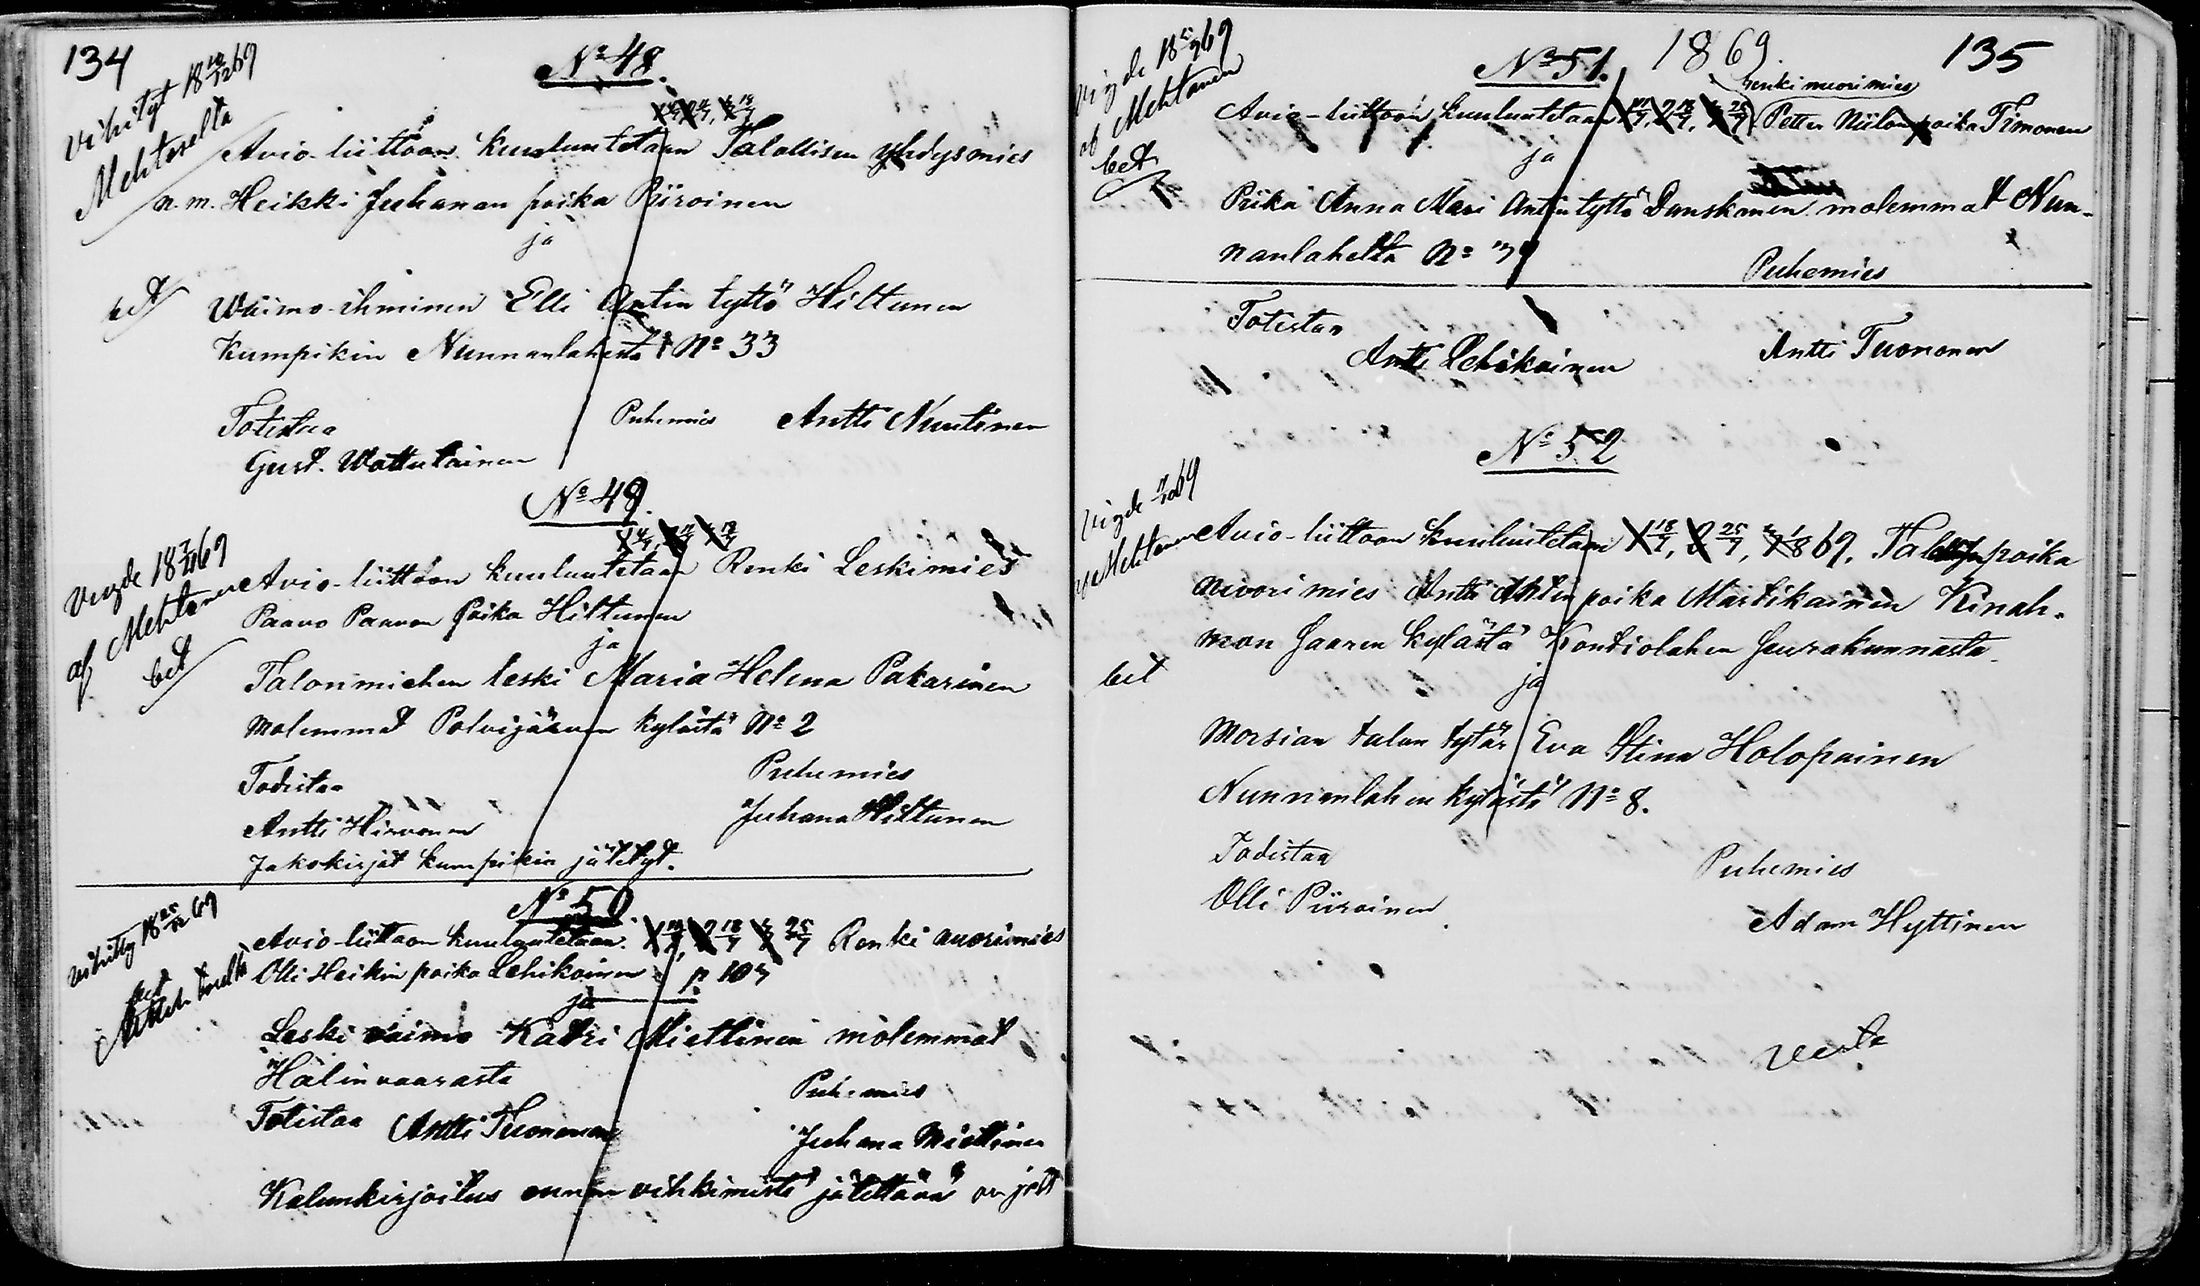 134
Vihityt 18 19/12 69
Mehtoselta
No 48.
1 4/7, 2 11/7, 3 18/7
Avio-liittoon kuulutetaan Talollisen yhdysmies
n.m. Heikki Juhanan poika Piiroinen
ja
bet
Waimo-ihminen Elli Antin tyttö Hiltunen
Kumpikin Nunnanlahesta No 33
Totistaa
Puhemies Antti Nuutinen
Gust. Wattulainen
No 49.
Vigde 18 69
af Mehtonen
bet
Avio-liittoon kuulutetaan Renki Leskimies
Paavo Paavon poika Hiltunen
ja
Talonmiehen leski Maria Helena Pakarinen
molemmat Polvijärven kylästä No 2
Todistaa
Puhemies
Antti Hirvonen
Juhana Hiltunen
Jakokirjat kumpikin jätetyt.
No 50.
vihitty 18 69
bet
Avio-liittoon kuulutetaan 1 11/7, 2 18/7 3 25/7 Renki nuorimies
Olli Heikin poika Lehikoinen p. 103
ja
Leski vaimo Katri Miettinen molemmat
Hälinvaarasta
Puhemies
Totistaa Antti Tuononen
Juhana Miettinen
Kalunkirjoitus ennen vihkimistä jätettävä on jätt
1869.
135
Vigde 18 69
af Mehtonen
bet
No 51.
Renki nuorimies
Avio-liittoon kuulutetaan 1 11/7, 2 18/7, 3 25/7 Petter Niilon poika Timonen
ja
Piika Anna Mari Antin tyttö Danskanen molemmat Nun-
nanlahelta No
Puhemies
Totistaa
Antti Lehikoinen
Antti Tuononen
No 52
Vigde 69
af Mehtonen
Avio-liittoon kuulutetaan 1 18/7, 2 25/7, 3 1/8 69. Talon poika
nuorimies Antti Antin poika Martikainen Kinah-
mon Saaren kylästä Kontiolahen seurakunnasta
bet
ja
Morsian talon tytär Eva Stina Holopainen
Nunnanlahen kylästä No 8.
Todistaa
Puhemies
Olli Piiroinen
Adam Hyttinen